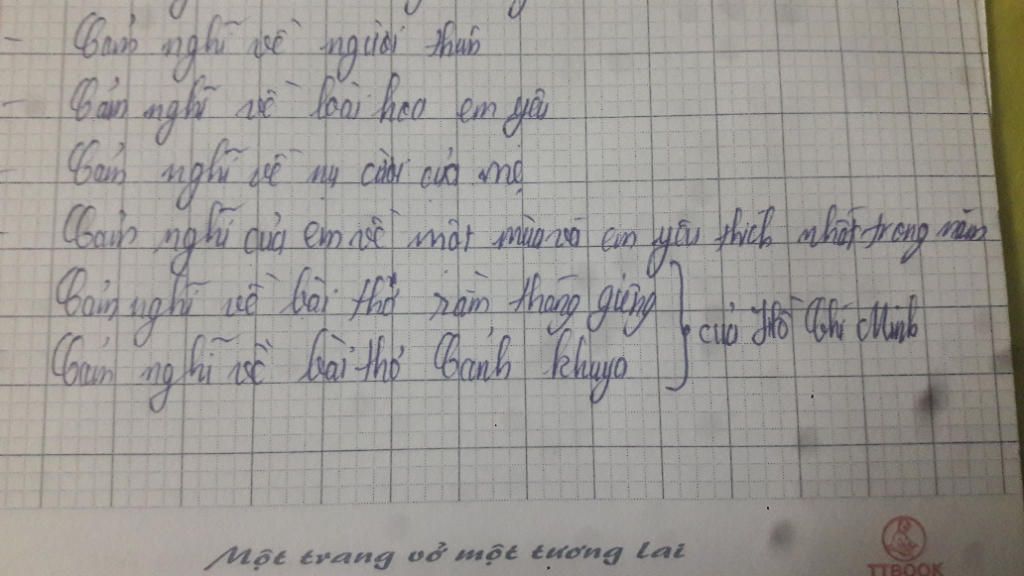 - Cảm nghĩ về người thân
- Cảm nghĩ về loài hoa em yêu
- Cảm nghĩ về nụ cười của mẹ
- Cảm nghĩ của em về một mùa mà em yêu thích nhất trong năm
Cảm nghĩ về bài thơ rằm tháng giêng
Cảm nghĩ về bài thơ Cảnh khuya } của Hồ Chí Minh
Một trang vở một tương lai
TTBOOK